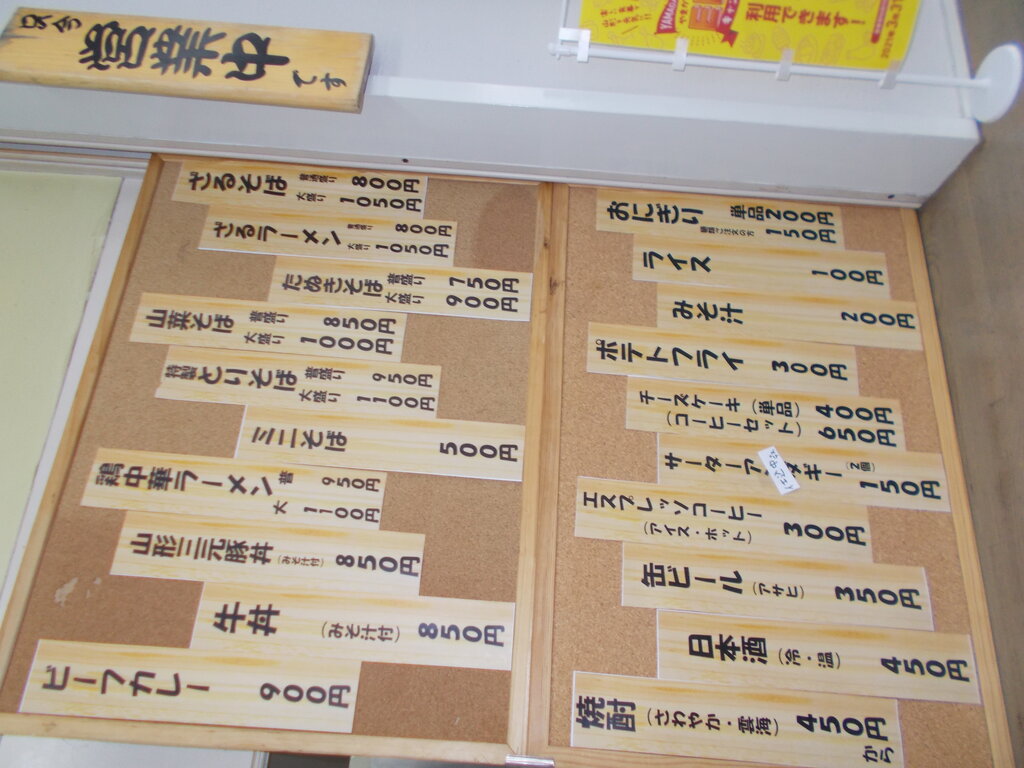 只今
営業中
です
利用できます！
2021年3月31
ざるそば 普通盛り 800円
大盛り 1050円
ざるラーメン 普通盛り 800円
大盛り 1050円
たぬきそば 普盛り 750円
大盛り 900円
山菜そば 普盛り 850円
大盛り 1000円
特製 とりそば 普盛り 950円
大盛り 1100円
ミニそば 500円
鶏中華ラーメン 普 950円
大 1100円
山形三元豚丼 (みそ汁付) 850円
牛丼 (みそ汁付) 850円
ビーフカレー 900円
おにぎり 単品200円
150円
ライス 100円
みそ汁 200円
ポテトフライ 300円
チーズケーキ (単品) 400円
(コーヒーセット) 650円
サーターア ダギー (2個) 150円
エスプレッソコーヒー
(アイス・ホット) 300円
缶ビール (アサヒ) 350円
日本酒 (冷・温) 450円
焼酎 (さわやか・雲海) 450円
から